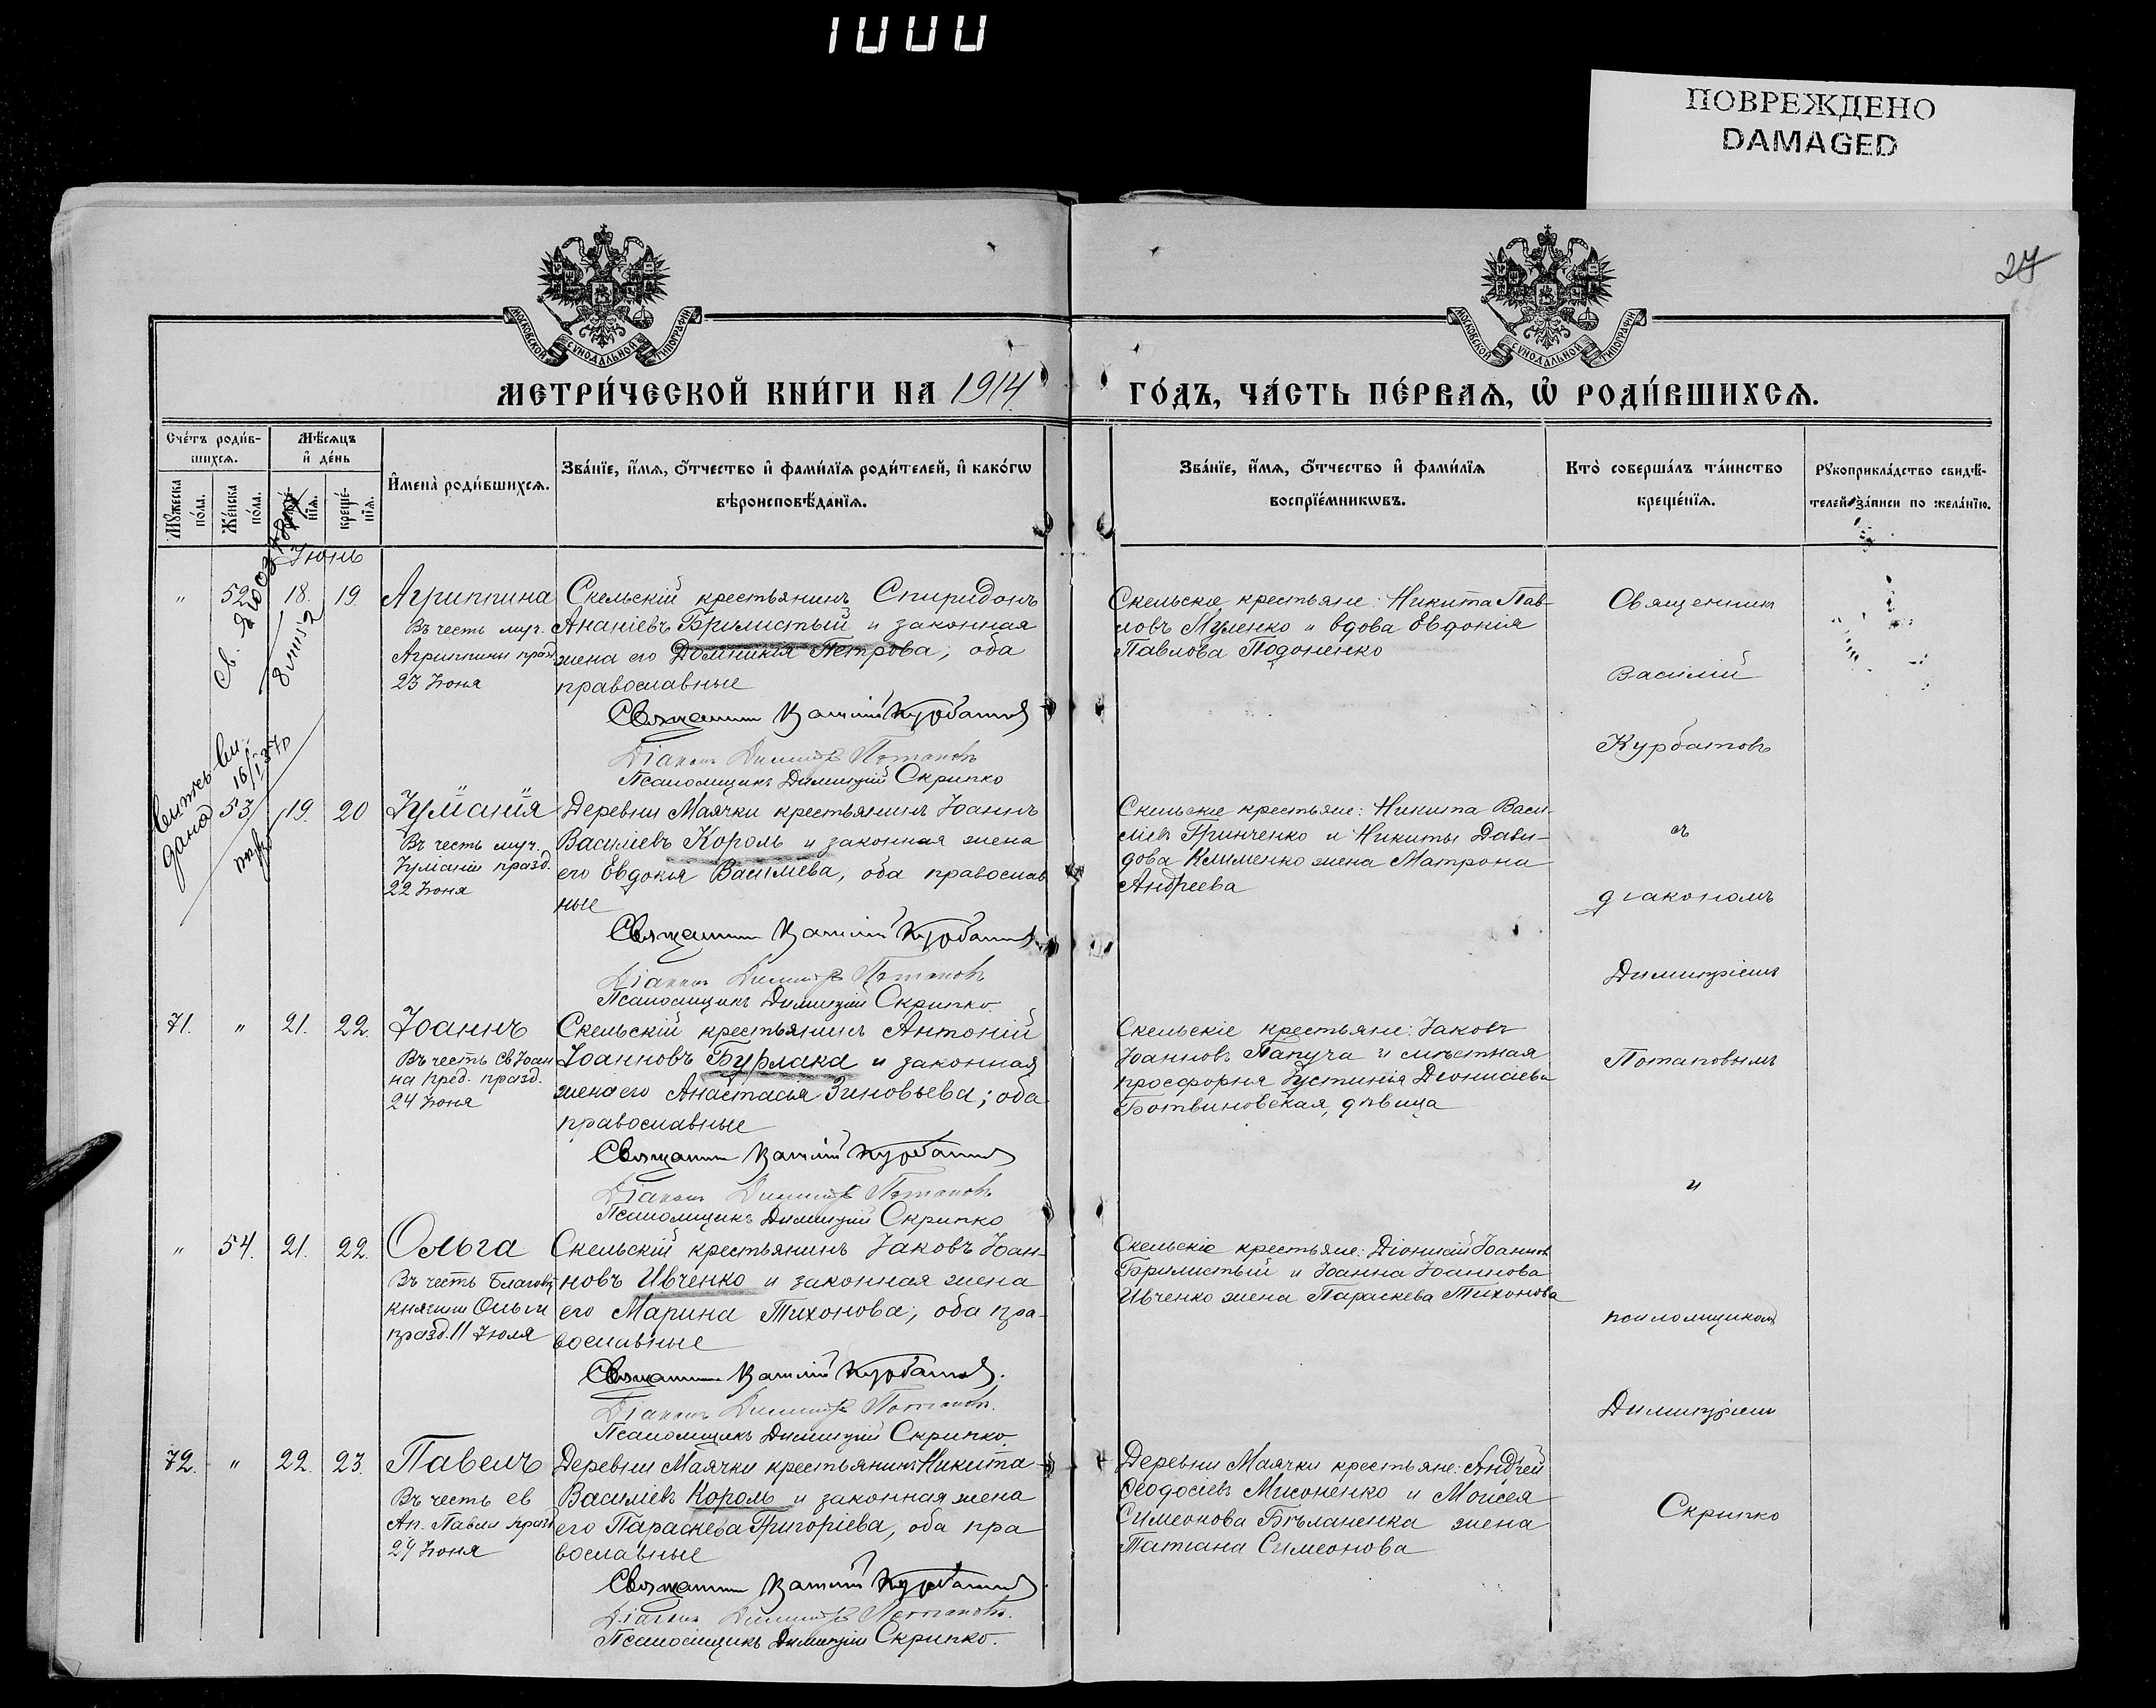 1000
ПОВРЕЖДЕНО
DAMAGED
27
МОСКОВСКОЙ СѴНОДАЛЬНОЙ ТИПОГРАФІИ
МОСКОВСКОЙ СѴНОДАЛЬНОЙ ТИПОГРАФІИ
МЕТРИ́ЧЕСКОЙ КНИ́ГИ НА 1914
ГО́ДЪ, ЧА́СТЬ ПЕ́РВАѦ, Ѡ҆ РОДИ́ВШИХСѦ.
Сче́тъ роди́в-
шихсѧ.
Мѣ́сѧцъ
и҆ де́нь
И҆мена̀ роди́вшихсѧ.
Зва́нїе, и҆́мѧ, ѻ҆́тчество и҆ фами́лїѧ роди́телей, и҆ како́гѡ
вѣроисповѣ́данїѧ.
Мꙋ́жеска
по́ла.
Же́нска
по́ла.
нїѧ.
креще́-
нїѧ.
Зва́нїе, и҆́мѧ, ѻ҆́тчество и҆ фами́лїѧ
воспрїе́мникѡвъ.
Кто̀ соверша́лъ та́инство
креще́нїѧ.
Рꙋкоприкла́дство свидѣ́-
телей за́писи по жела́нїю.
Іюнь
" 52 18. 19. Агриппина
Въ честь муч.
Агриппины празд.
23 Іюня
Скельскій крестьянинъ Спиридонъ
Ананіевъ Брилистый и законная
жена его Домникія Петрова; оба
православные
Священникъ Василій Курбатовъ
Діаконъ Димитрій Потаповъ
Псаломщикъ Димитрій Скрипко
Скельскіе крестьяне: Никита Пав-
ловъ Муленко и вдова Евдокія
Павлова Подоненко
Священникъ
Василій
Курбатовъ
53 19. 20 Іуліанія
Въ честь муч.
Іуліаніи празд.
22 Іюня
Деревни Маячки крестьянинъ Іоаннъ
Василіевъ Король и законная жена
его Евдокія Василіева, оба православ
ные
Священникъ Василій Курбатовъ
Діаконъ Димитрій Потаповъ
Псаломщикъ Димитрій Скрипко.
Скельскіе крестьяне: Никита Васи-
ліевъ Гринченко и Никиты Дави-
дова Клименко жена Матрона
Андреева
съ
діакономъ
Димитріемъ
71. " 21. 22. Іоаннъ
Въ честь Св Іоан
на Пред. празд.
24 Іюня
Скельскій крестьянинъ Антоній
Іоанновъ Бурлака и законная
жена его Анастасія Зиновьева; оба
православные
Священникъ Василій Курбатовъ
Діаконъ Димитрій Потаповъ
Псаломщикъ Димитрій Скрипко
Скельскіе крестьяне: Іаковъ
Іоанновъ Папуча и мѣстная
просфорня Іустинія Діонисіева
Ботвиновская, дѣвица
Потаповымъ
и
" 54. 21. 22. Ольга
Въ честь Благовѣ
княгини Ольги
празд. 11 Іюля
Скельскій крестьянинъ Іаковъ Іоан-
новъ Ивченко и законная жена
его Марина Тихонова, оба пра-
вославные
Священникъ Василій Курбатовъ.
Діаконъ Димитрій Потаповъ.
Псаломщикъ Димитрій Скрипко.
Скельскіе крестьяне: Діонисій Іоанновъ
Брилистый и Іоанна Іоаннова
Ивченко жена Параскева Тихонова
псаломщикомъ
Димитріемъ
72. " 22. 23. Павелъ
Въ честь св
Ап. Павла празд
29 Іюня
Деревни Маячки крестьянинъ Никита
Василіевъ Король и законная жена
его Параскева Григоріева, оба пра
вославные
Священникъ Василій Курбатовъ
Діаконъ Димитрій Потаповъ.
Псаломщикъ Димитрій Скрипко.
Деревни Маячки крестьяне: Андрей
Ѳеодосіевъ Мисоненко и Моисея
Симеонова Бѣланенка жена
Татіана Симеонова
Скрипко